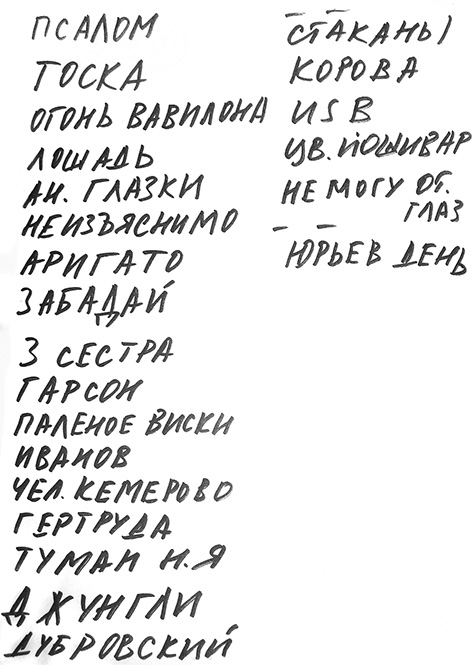 ПСАЛОМ
ТОСКА
ОГОНЬ ВАВИЛОНА
ЛОШАДЬ
АН. ГЛАЗКИ
НЕИЗЪЯСНИМО
АРИГАТО
ЗАБАДАЙ
3 СЕСТРА
ГАРСОН
ПАЛЕНОЕ ВИСКИ
ИВАНОВ
ЧЕЛ. КЕМЕРОВО
ГЕРТРУДА
ТУМАН Н.Я
ДЖУНГЛИ
ДУБРОВСКИЙ
СТАКАНЫ
КОРОВА
ИSВ
ЦВ. ЙОШИВАР
НЕ МОГУ ОТ.
ГЛАЗ
ЮРЬЕВ ДЕНЬ